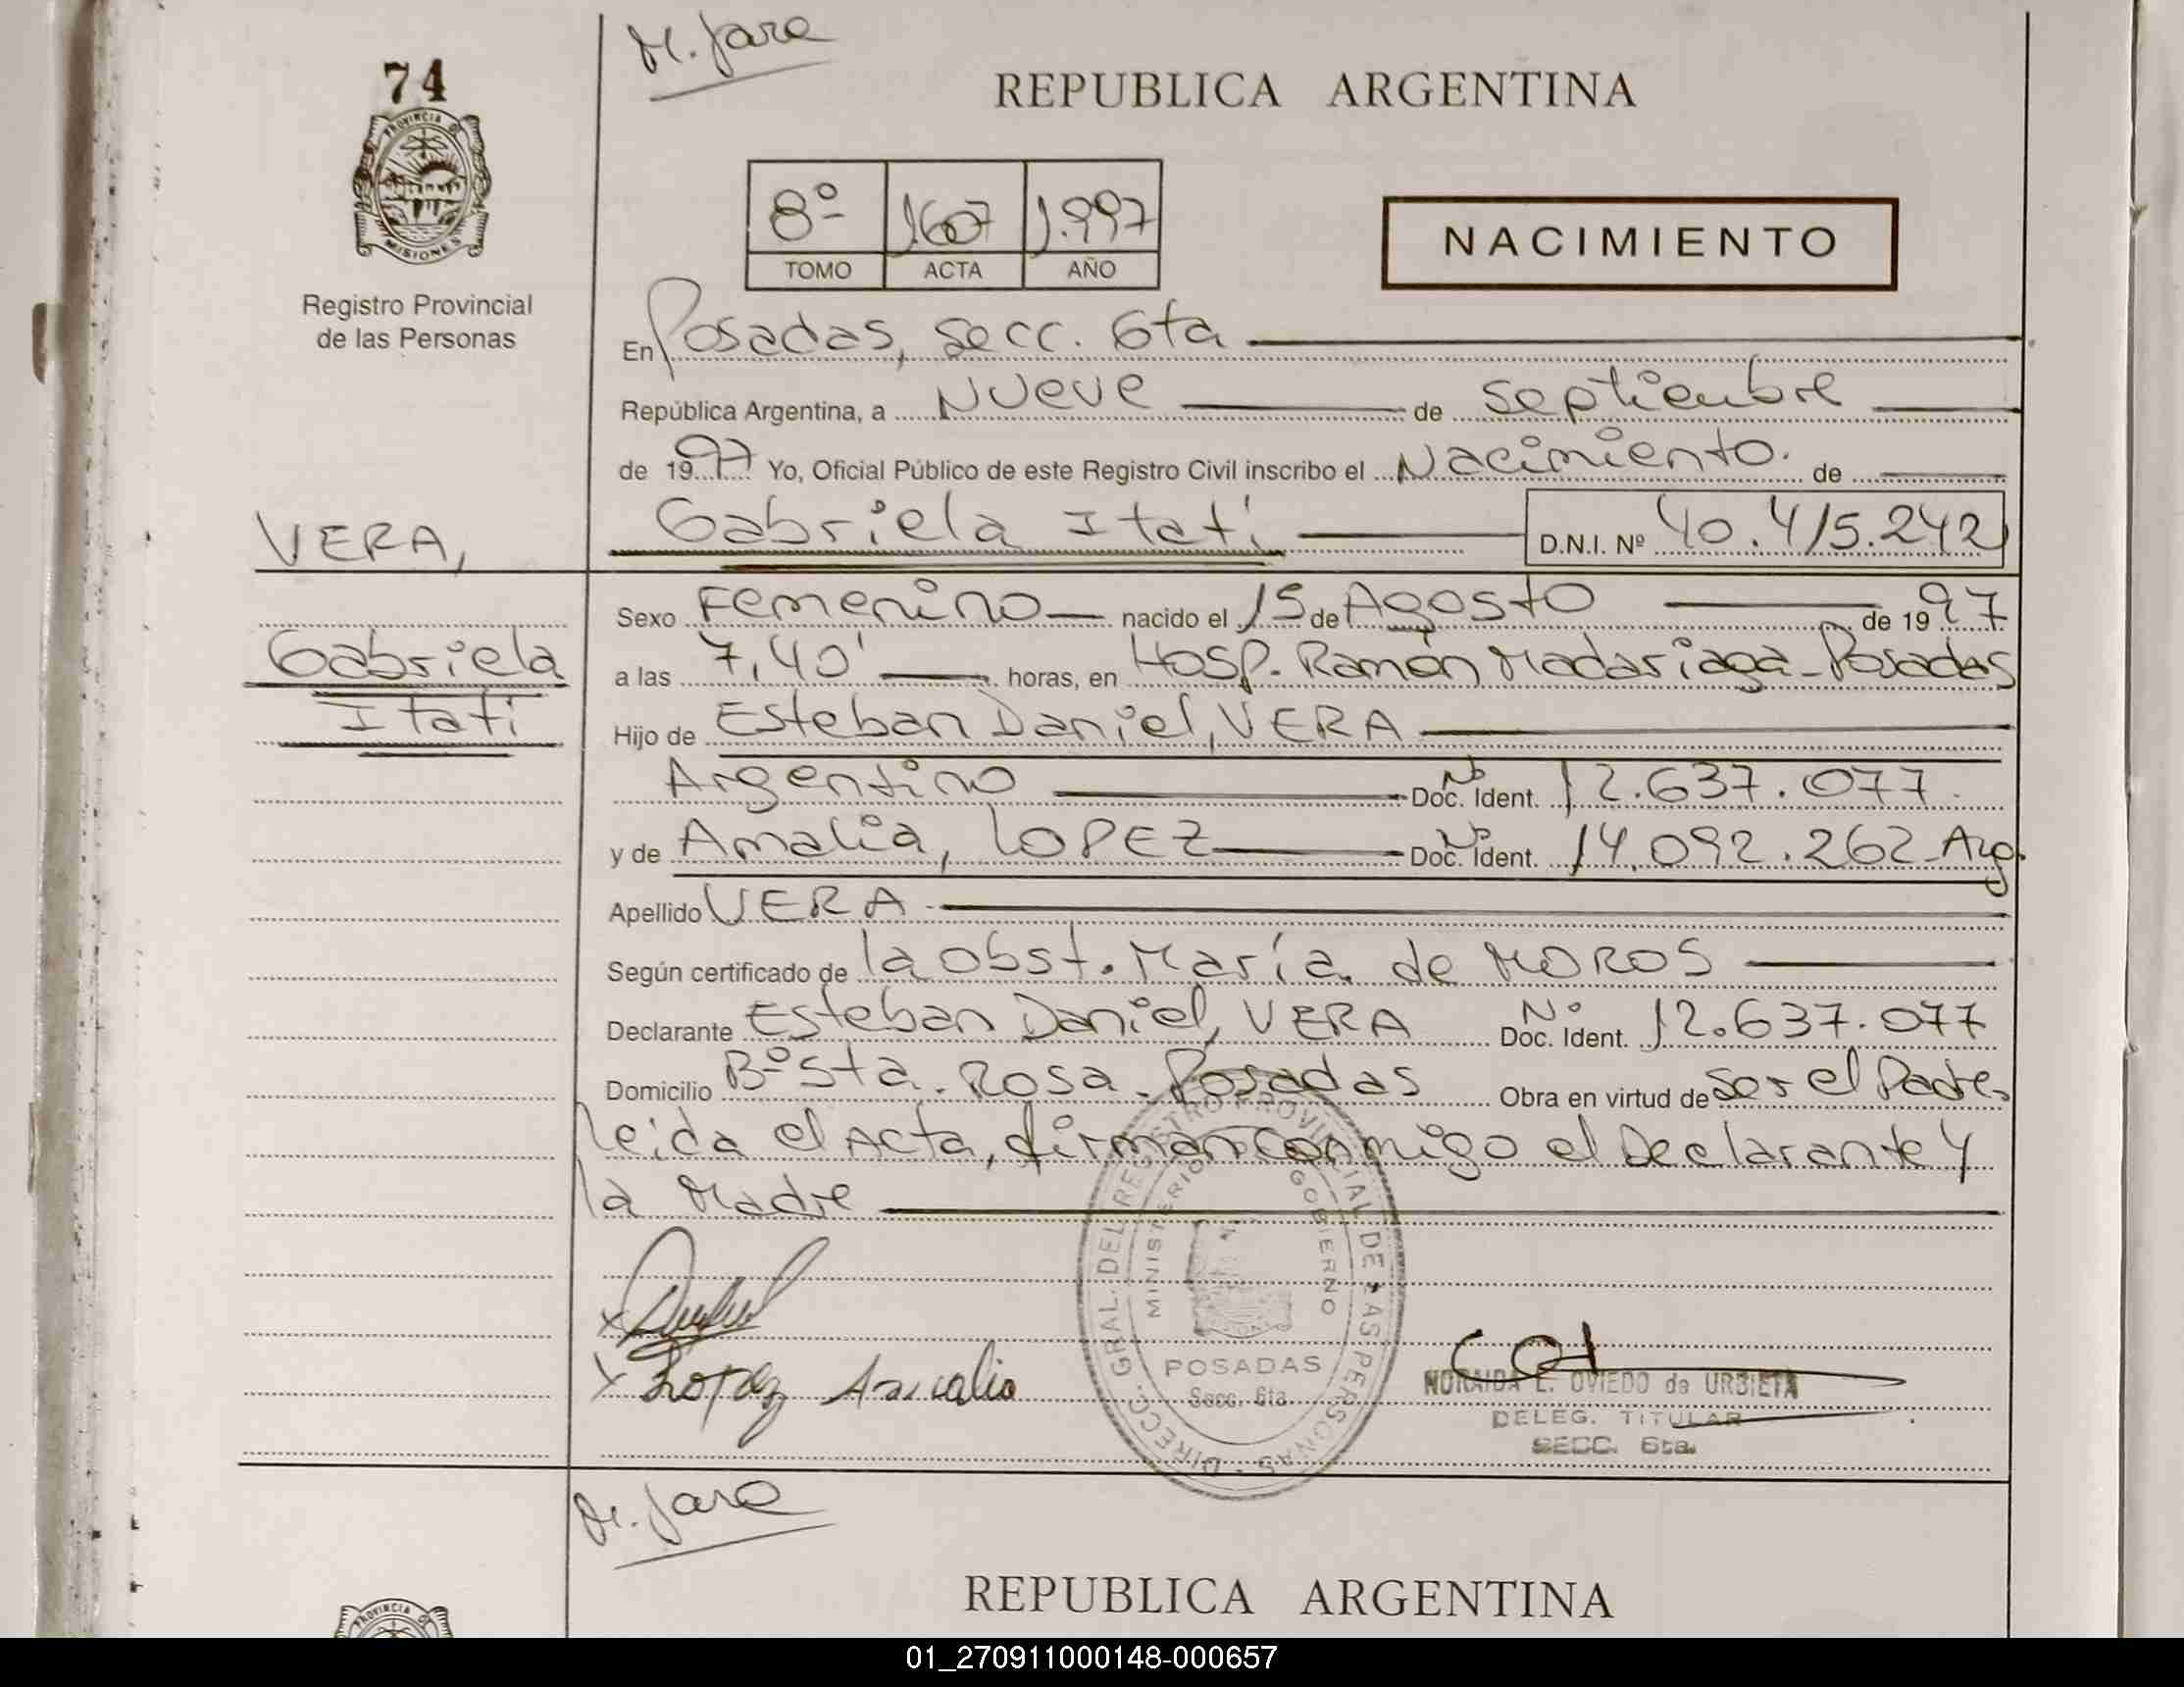 M. Jara
74
REPUBLICA ARGENTINA
PROVINCIA DE
MISIONES
8º 1607 1.997
TOMO ACTA AÑO
NACIMIENTO
Registro Provincial
de las Personas
En Posadas, Secc. 6ta
República Argentina, a Nueve de Septiembre
de 1997 Yo, Oficial Público de este Registro Civil inscribo el Nacimiento. de
VERA, Gabriela Itatí D.N.I. Nº 40.415.242
Sexo Femenino nacido el 15 de Agosto de 1997
Gabriela
a las 7,40' horas, en Hosp. Ramón Madariaga - Posadas
Itatí
Hijo de Esteban Daniel, VERA
Argentino Nº Doc. Ident. 12.637.077
y de Amalia, LOPEZ Nº Doc. Ident. 14.092.262 - Arg.
Apellido VERA
Según certificado de la Obst. María de MOROS
Declarante Esteban Daniel, VERA Nº Doc. Ident. 12.637.077
Domicilio Bº Sta. Rosa - Posadas Obra en virtud de Ser el Padre
Leida el Acta, firman conmigo el Declarante y
la Madre
DIRECC. GRAL. DEL REGISTRO PROVINCIAL DE LAS PERSONAS
MINISTERIO GOBIERNO
POSADAS
Secc. 6ta.
x
x Lopez Amalia
NORAIDA E. OVIEDO de URBIETA
DELEG. TITULAR
SECC. 6ta.
M. Jara
REPUBLICA ARGENTINA
PROVINCIA DE
01_270911000148-000657